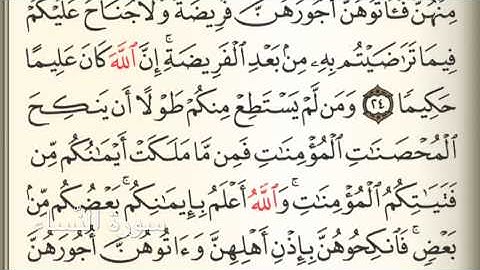 مِنْهُنَّ فَـَٔاتُوهُنَّ أُجُورَهُنَّ فَرِيضَةً وَلَا جُنَاحَ عَلَيْكُمْ
فِيمَا تَرَٰضَيْتُم بِهِۦ مِنۢ بَعْدِ ٱلْفَرِيضَةِ ۚ إِنَّ ٱللَّهَ كَانَ عَلِيمًا
حَكِيمًا ۝٢٤ وَمَن لَّمْ يَسْتَطِعْ مِنكُمْ طَوْلًا أَن يَنكِحَ
ٱلْمُحْصَنَٰتِ ٱلْمُؤْمِنَٰتِ فَمِن مَّا مَلَكَتْ أَيْمَٰنُكُم مِّن
فَتَيَٰتِكُمُ ٱلْمُؤْمِنَٰتِ ۚ وَٱللَّهُ أَعْلَمُ بِإِيمَٰنِكُم ۚ بَعْضُكُم مِّنۢ
بَعْضٍ ۚ فَٱنكِحُوهُنَّ بِإِذْنِ أَهْلِهِنَّ وَءَاتُوهُنَّ أُجُورَهُنَّ
سورة النساء